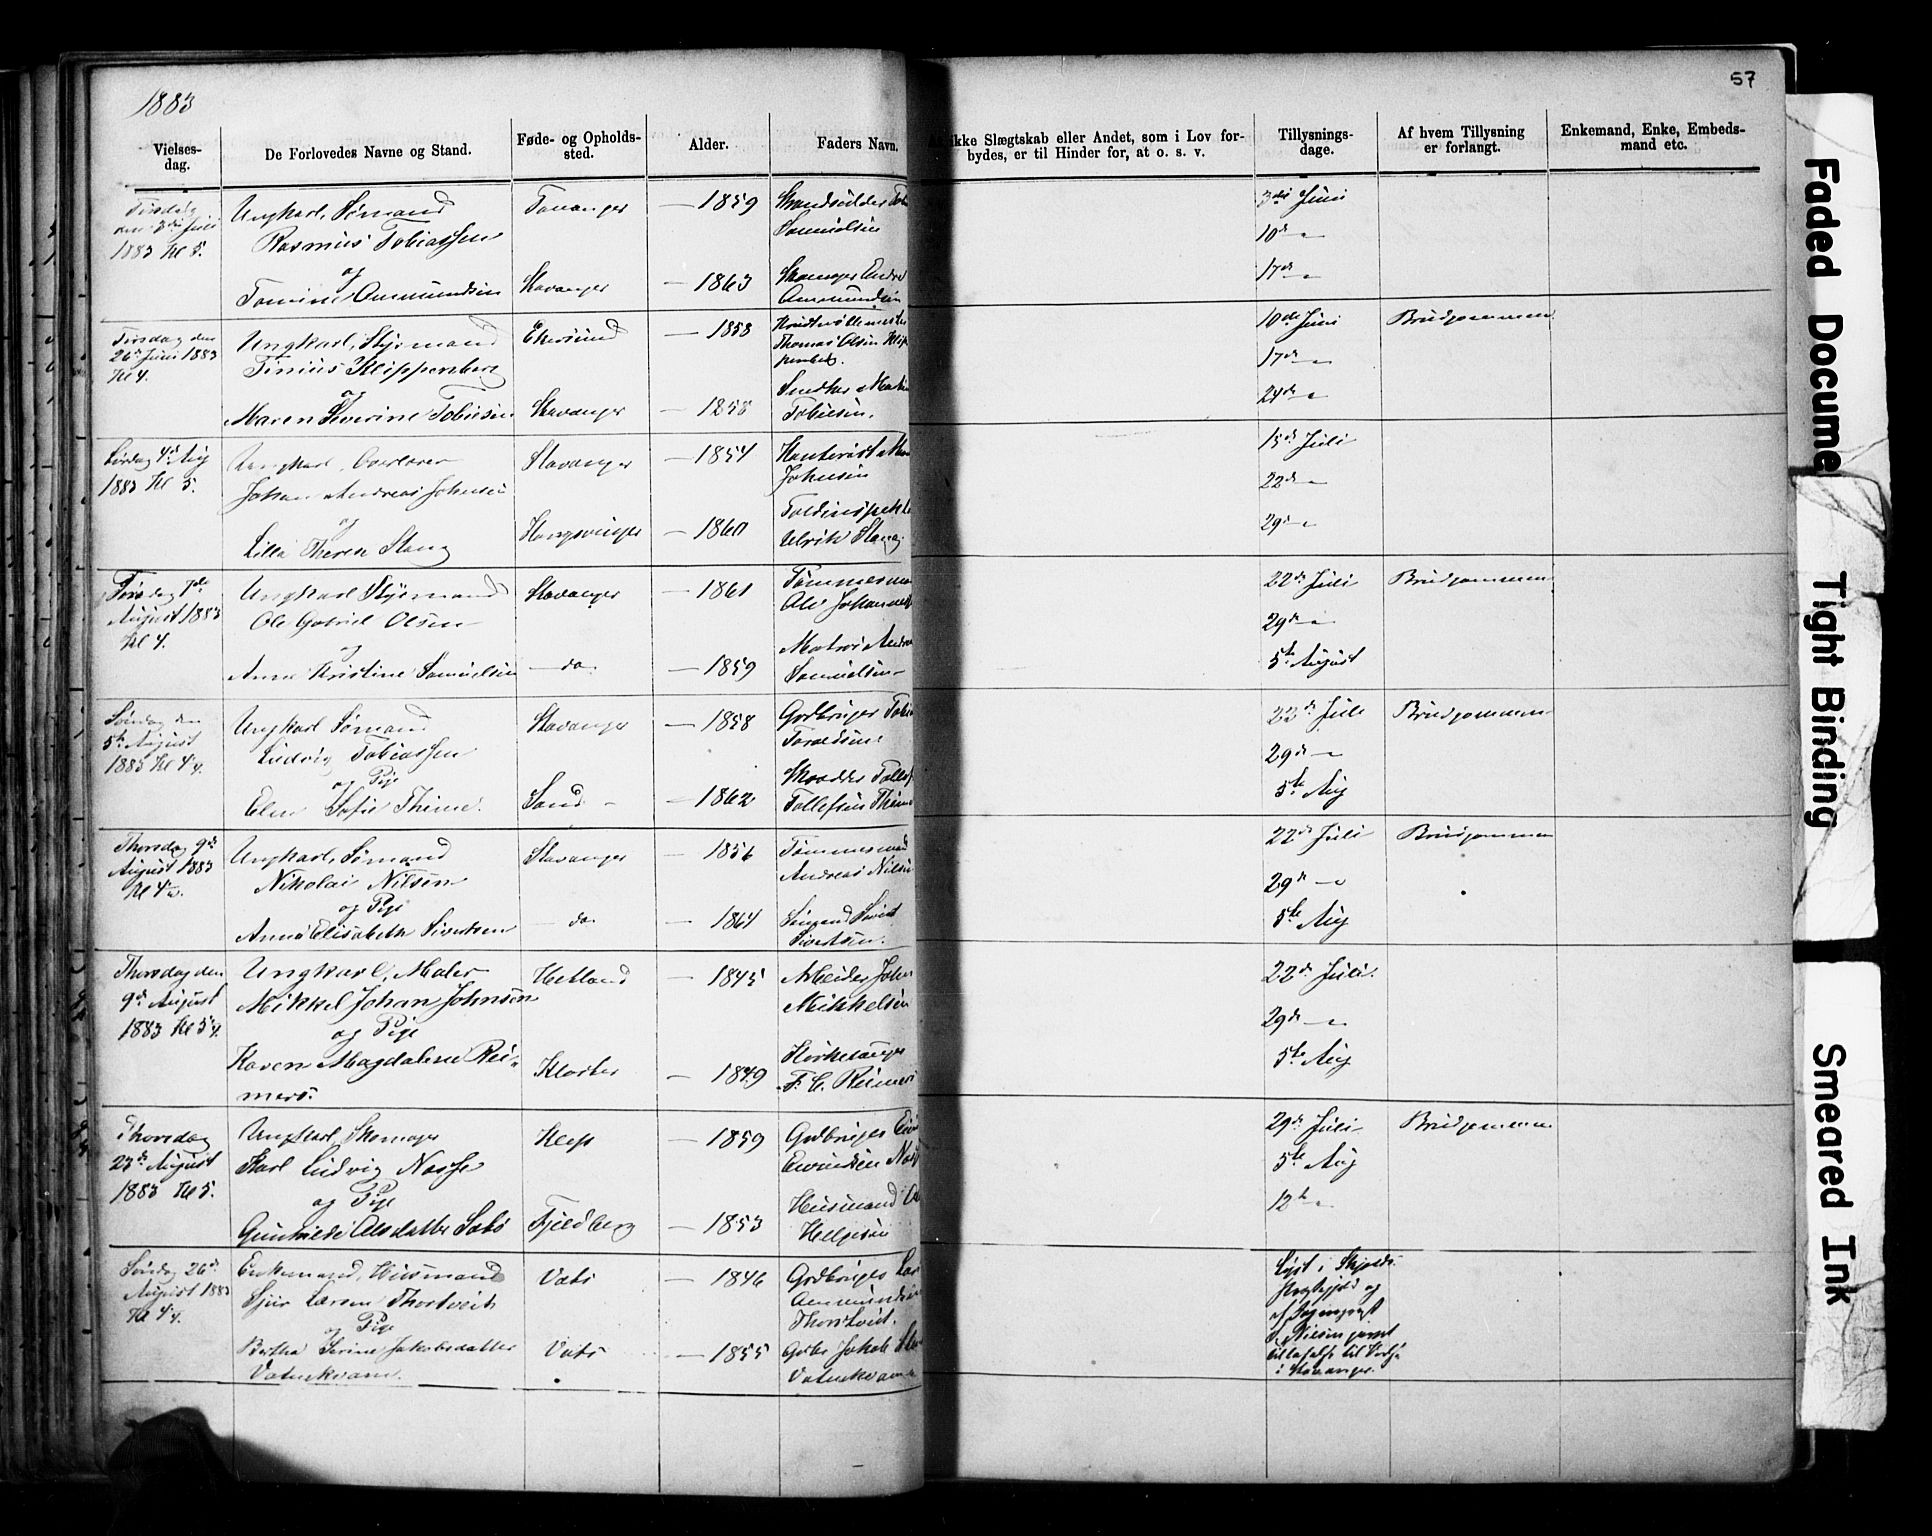 1883
57
Vielses-
dag.
De Forlovedes Navne og Stand.
Føde- og Opholds-
sted.
Alder.
Faders Navn.
ikke Slægtskab eller Andet, som i Lov for-
bydes, er til Hinder for, at o. s. v.
Tillysnings-
dage.
Af hvem Tillysning
er forlangt.
Enkemand, Enke, Embeds-
mand etc.
Tirsdag
den 3die Juli
1883 Kl 5.
Ungkarl, Sømand
Rasmus Tobiassen
og
Tomine Ommundsen
Tananger
Stavanger
— 1859
— 1863
Samuelsen
Skomager
Ommundsen
3die Juni
10de —
17de —
Tirsdag den
26de Juni 1883
Kl 4.
Ungkarl, Styrmand
Tinius Klippenberg
og
Maren Severine Tobiesen
Ekersund
Stavanger
— 1858
— 1858
Thomas Olsen Klip
penberg.
Snedker Martin
Tobiesen.
10de Juni
17de —
24de —
Brudgommen
Lørdag 4de Aug
1883 Kl 5.
Ungkarl,
Johan Andreas Johnsen
og
Lilla Therese Stang
Stavanger
Kongsvinger
— 1854
— 1860
Johnsen
Toldinspekt
Ulrik Stang.
15de Juli
22de —
29de —
Tirsdag 7de
August 1883
Kl 4.
Ungkarl Styrmand
Ole Gabriel Olsen
og
Anne Kristine Samuelsen
Stavanger
— do —
— 1861
— 1859
Tømmermand
Ole Johannes
Matros Andreas
Samuelsen
22de Juli
29de —
5te August
Brudgommen
Søndag den
5te August
1883 Kl 4¼.
Ungkarl Sømand
Ludvig Tobiassen
og Pige
Elen Sofie Thime.
Stavanger
Sand —
— 1858
— 1862
Grdbruger Tobias
Skrædder Tollef
Tollefsen Thime
22de Juli
29de —
5te Aug
Brudgommen
Thorsdag 9de
August 1883
Kl 4½.
Ungkarl, Sømand
Nikolai Nilsen
og Pige
Anna Elisabeth Sivertsen
Stavanger
— do —
— 1856
— 1864
Tømmermand
Andreas Nilsen
Sivertsen.
22de Juli
29de —
5te Aug
Brudgommen
Thorsdag den
9de August
1883 Kl 5¼.
Ungkarl, Maler
Mikkel Johan Johnsen
og Pige
Karen Magdalene Rei-
mers.
Hetland
Kloster
— 1845
— 1849
Arbeider John
Mikkelsen
Kirkesanger
F. C. Reimers
22de Juli.
29de —
5te Aug
Thorsdag
23de August
1883 Kl 5.
Ungkarl, Skomager
Karl Ludvig Næsse
og Pige
Gunhilde Olsdatter Sæbø
Klep
Fjeldberg
— 1859
— 1853
Grdbruger
Husmand
Helgesen
29de Juli
5te Aug
12te —
Brudgommen
Søndag 26de
August 1883
Kl 4¼.
Enkemand, Husmand
Sjur Larsen Thortveit
og Pige
Bertha Serine Jakobsdatter
Vatnekvam.
Vats
Vats
— 1846
— 1855
Grdbruger Lars
Ommundsen
Thortveit.
Grbr Jakob
Vatnekvam
Lyst i Skjolds
Præstegjeld og
af Sognepræst
Nielsen
til
i Stavanger.
Faded Docume
Tight Binding
Smeared Ink